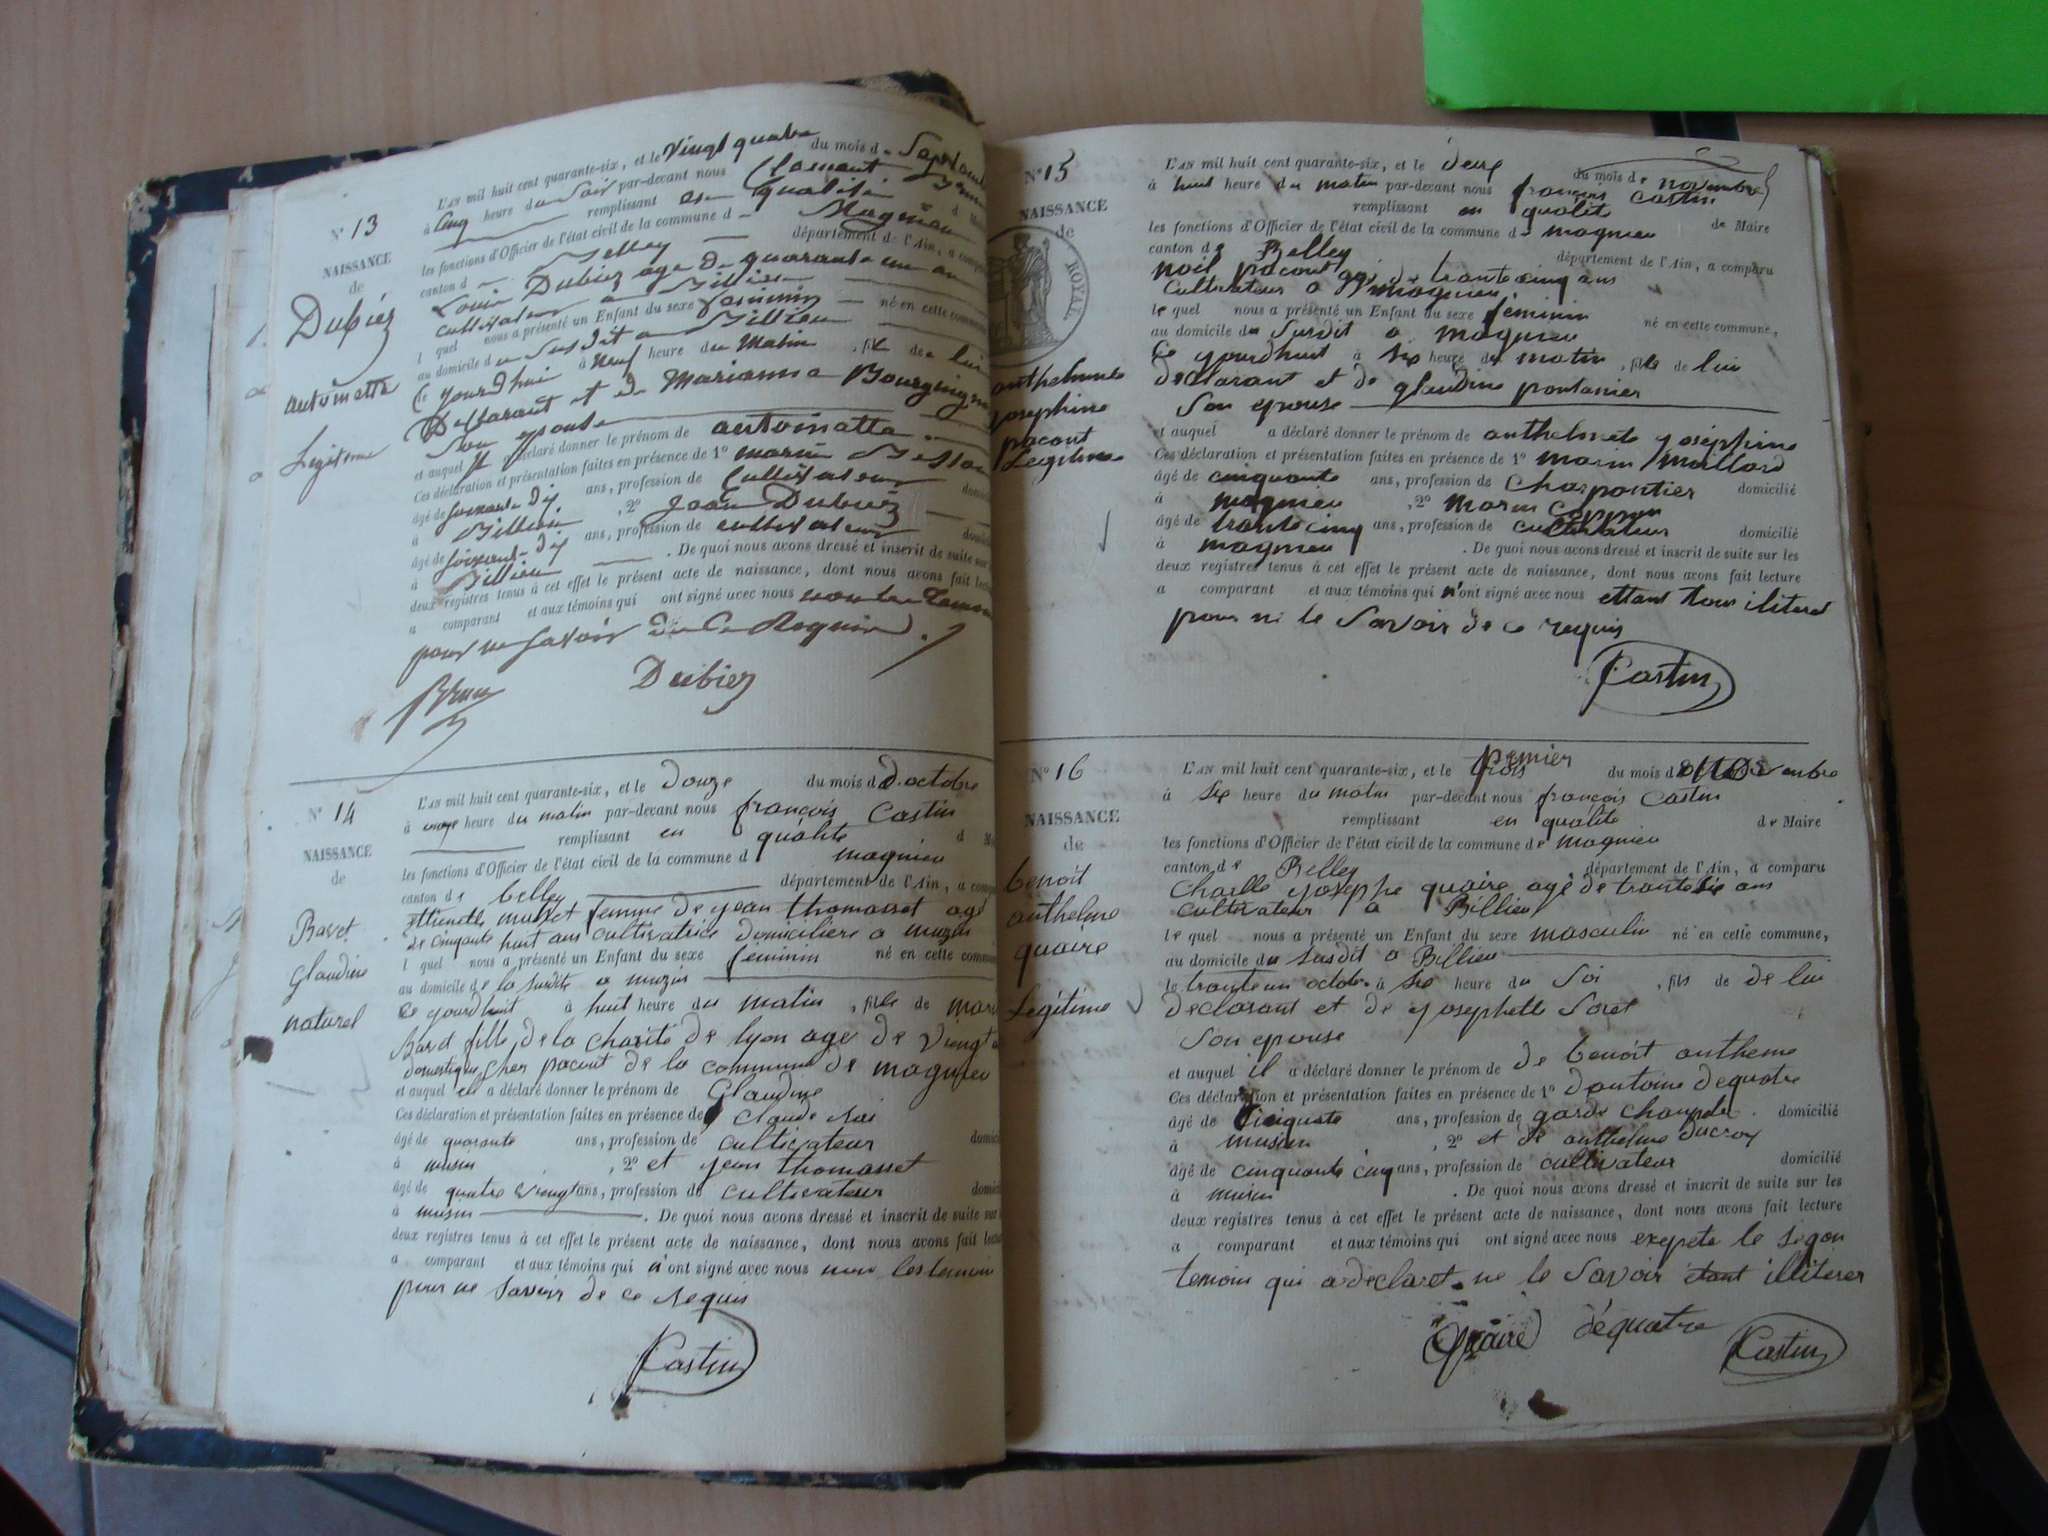 N° 13
NAISSANCE
de
Dubiez
antoinette
Légitime
L'AN mil huit cent quarante-six, et le Vingt quatre du mois d
à Cinq heure du Soir par-devant nous
remplissant en qualité
les fonctions d'Officier de l'état civil de la commune d Magnieu
canton d Belley département de l'Ain, a comp
Louis Dubiez age de quarante un an
cultivateur a Billieu
l quel nous a présenté un Enfant du sexe né en cette commune
au domicile du Susdit a Billieu
Ce yourdhui à neuf heure du Matin , fil de lui
Declarant et de Marianne
Son epouse
et auquel il a déclaré donner le prénom de antoinatta
Ces déclaration et présentation faites en présence de 1°
âgé de ans, profession de Cultivateur
à Billieu , 2° Jean Dubiez
âgé de ans, profession de cultivateur
à Billieu . De quoi nous avons dressé et inscrit de suite sur
deux registres tenus à cet effet le présent acte de naissance, dont nous avons fait
a comparant et aux témoins qui ont signé avec nous
pour ne Savoir de Ce Requis
Dubiez
N° 14
NAISSANCE
de
Bavet
Glaudine
naturel
L'AN mil huit cent quarante-six, et le Douze du mois d d'octobre
à onze heure du matin par-devant nous françois Castin
remplissant en qualité d
les fonctions d'Officier de l'état civil de la commune d magnieu
canton de belley département de l'Ain, a
femme de yean thomasset agé
de cinquante huit ans cultivatrice domiciliere a muzin
l quel nous a présenté un Enfant du sexe feminin né en cette
au domicile de la susdite a muzin
Ce yourdhuit à huit heure du matin , fille de
fille de la charité de lyon age de
domestique cher pacout de la commune de magnieu
et auquel a déclaré donner le prénom de Glaudine
Ces déclaration et présentation faites en présence de claude
âgé de quarante ans, profession de cultivateur
à musin , 2° et yean thomasset
âgé de quatre viengt ans, profession de cultivateur
à musin . De quoi nous avons dressé et inscrit de suite sur
deux registres tenus à cet effet le présent acte de naissance, dont nous avons fait
a comparant et aux témoins qui n'ont signé avec nous
pour ne savoir de ce requis
Castin
N° 15
NAISSANCE
de
ROYAL
anthelmete
yosephine
pacout
Legitime
L'AN mil huit cent quarante-six, et le deux du mois de novembre
à huit heure du matin par-devant nous françois Castin
remplissant en qualité de Maire
les fonctions d'Officier de l'état civil de la commune de magnieu
canton de Belley département de l'Ain, a comparu
noël pacout agé de trante cinq ans
Cultivateur a magnieu
le quel nous a présenté un Enfant du sexe feminin né en cette commune,
au domicile du Surdit a magnieu
Ce yourdhuit à six heure du matin , fille de lui
declarant et de glaudine pontanier
Son epouse
et auquel a déclaré donner le prénom de anthelmete yoséphine
Ces déclaration et présentation faites en présence de 1° marin mallard
âgé de cinquante ans, profession de charpontier domicilié
à magnieu , 2° marin
âgé de trante cinq ans, profession de cultivateur domicilié
à magnieu . De quoi nous avons dressé et inscrit de suite sur les
deux registres tenus à cet effet le présent acte de naissance, dont nous avons fait lecture
a comparant et aux témoins qui n'ont signé avec nous ettant tous iliteret
pour ni le Savoir de ce requis
Castin
N° 16
NAISSANCE
de
benoit
anthelme
quaire
Legitime
L'AN mil huit cent quarante-six, et le premier trois du mois d
à six heure du matin par-devant nous françois Castin
remplissant en qualité de Maire
les fonctions d'Officier de l'état civil de la commune de magnieu
canton de Belley département de l'Ain, a comparu
Charlle yosephe quaire agé de trante six ans
cultivateur a Billieu
le quel nous a présenté un Enfant du sexe masculin né en cette commune,
au domicile du susdit a Billieu
le trante un octobre à six heure du Soi , fils de de lui
declarant et de yosephette Soret
Son epouse
et auquel il a déclaré donner le prénom de de benoit antheme
Ces déclaration et présentation faites en présence de 1° dantoine dequatre
âgé de ans, profession de garde champete domicilié
à musin , 2° et de anthelme ducroy
âgé de cinquante cinq ans, profession de cultivateur domicilié
à musin . De quoi nous avons dressé et inscrit de suite sur les
deux registres tenus à cet effet le présent acte de naissance, dont nous avons fait lecture
a comparant et aux témoins qui ont signé avec nous exepete le segon
temoin qui a declaret ne le Savoir étant illiterer
Quaire déquatre Castin